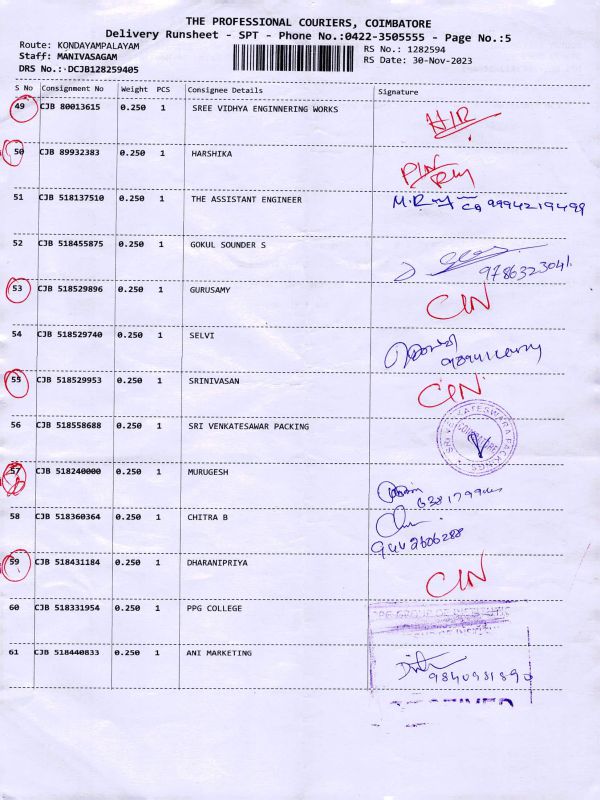 THE PROFESSIONAL COURIERS, COIMBATORE
Delivery Runsheet - SPT - Phone No.:0422-3505555 - Page No.:5
Route: KONDAYAMPALAYAM
RS No.: 1282594
Staff: MANIVASAGAM
RS Date: 30-Nov-2023
DRS No.: DCJB128259405
S No Consignment No Weight PCS Consignee Details Signature
49 CJB 80013615 0.250 1 SREE VIDHYA ENGINNERING WORKS
50 CJB 89932383 0.250 1 HARSHIKA
51 CJB 518137510 0.250 1 THE ASSISTANT ENGINEER 9994219499
52 CJB 518455875 0.250 1 GOKUL SOUNDER S
9786323041
53 CJB 518529896 0.250 1 GURUSAMY CIN
54 CJB 518529740 0.250 1 SELVI
55 CJB 518529953 0.250 1 SRINIVASAN CIN
56 CJB 518558688 0.250 1 SRI VENKATESAWAR PACKING
57 CJB 518240000 0.250 1 MURUGESH
58 CJB 518360364 0.250 1 CHITRA B
9442606288
59 CJB 518431184 0.250 1 DHARANIPRIYA CIN
60 CJB 518331954 0.250 1 PPG COLLEGE
61 CJB 518440833 0.250 1 ANI MARKETING
9840981890